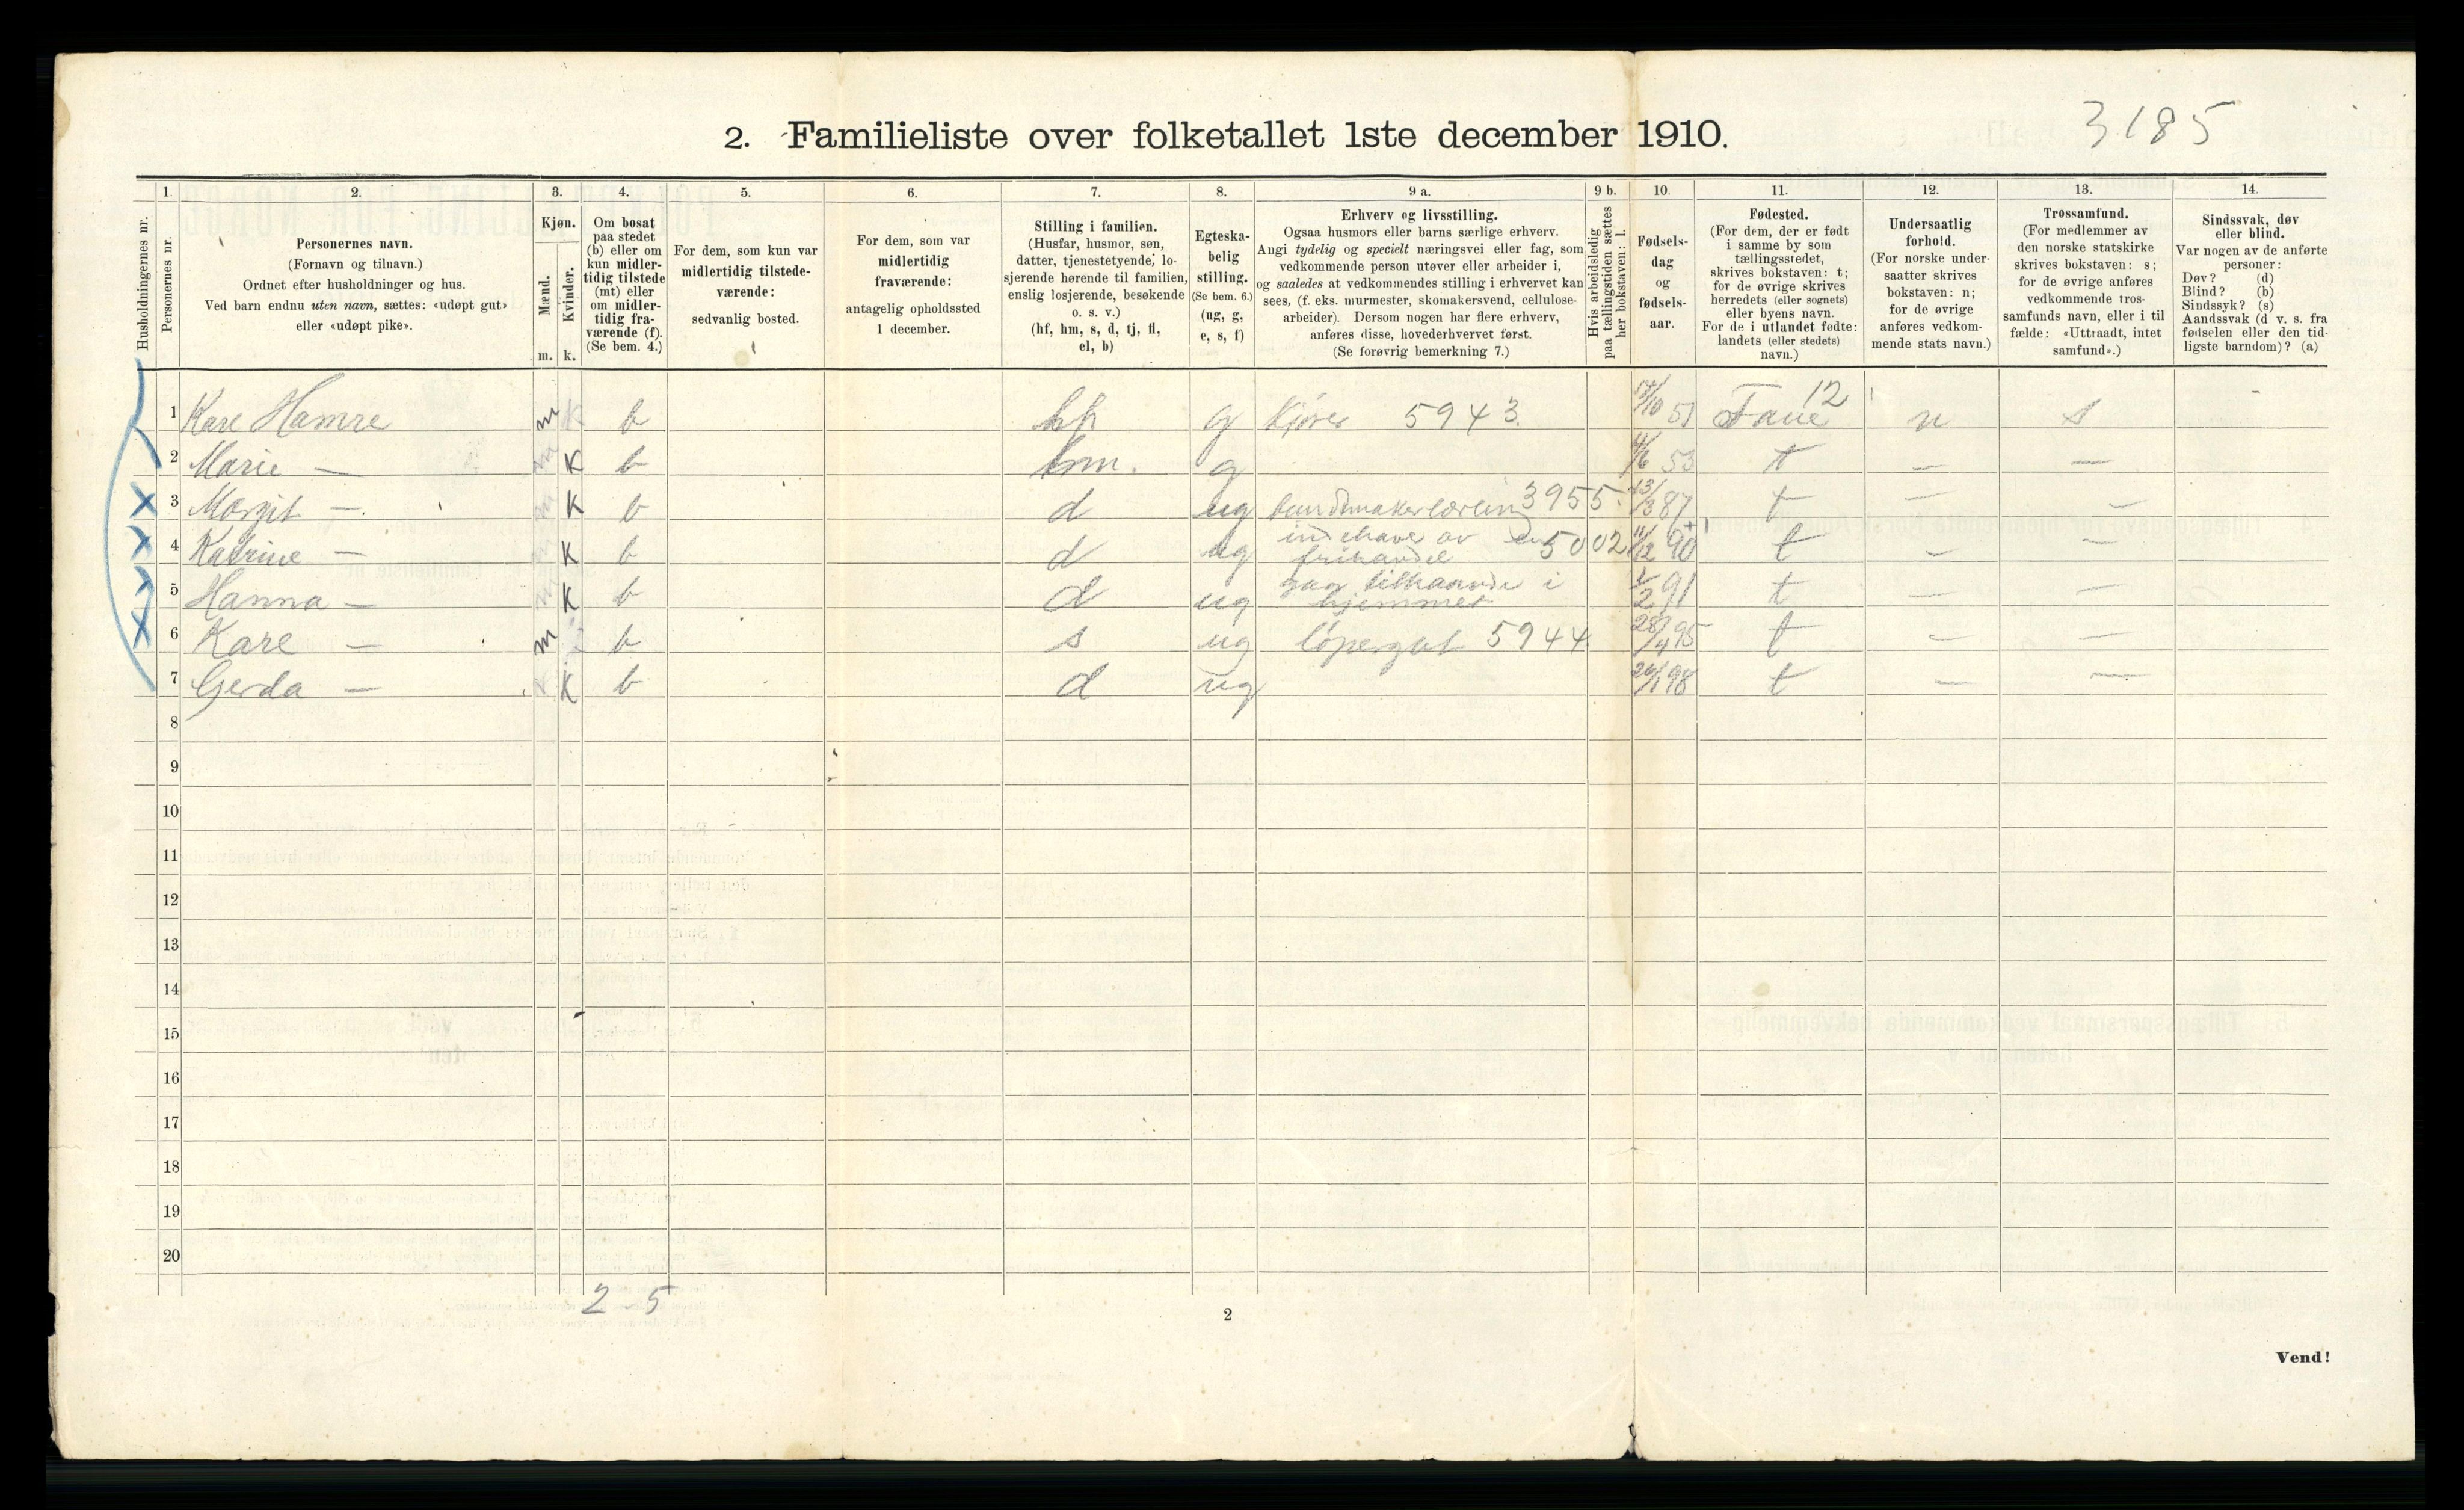 3185
2. Familieliste over folketallet 1ste december 1910.
Husholdningernes nr.
1. 2. 3. 4. 5. 6. 7. 8. 9 a. 9 b. 10. 11. 12. 13. 14.
Personernes nr.
Personernes navn.
(Fornavn og tilnavn.)
Ordnet efter husholdninger og hus.
Ved barn endnu uten navn, sættes: «udøpt gut»
eller «udøpt pike».
Kjøn.
Mænd.
Kvinder.
m. k.
Om bosat
paa stedet
(b) eller om
kun midler-
tidig tilstede
(mt) eller
om midler-
tidig fra-
værende (f).
(Se bem. 4.)
For dem, som kun var
midlertidig tilstede-
værende:
sedvanlig bosted.
For dem, som var
midlertidig
fraværende:
antagelig opholdssted
1 december.
Stilling i familien.
(Husfar, husmor, søn,
datter, tjenestetyende, lo-
sjerende hørende til familien,
enslig losjerende, besøkende
o. s. v.)
(hf, hm, s, d, tj, fl,
el, b)
Egteska-
belig
stilling.
(Se bem. 6.)
(ug, g,
e, s, f)
Erhverv og livsstilling.
Ogsaa husmors eller barns særlige erhverv.
Angi tydelig og specielt næringsvei eller fag, som
vedkommende person utøver eller arbeider i,
og saaledes at vedkommendes stilling i erhvervet kan
sees, (f. eks. murmester, skomakersvend, cellulose-
arbeider). Dersom nogen har flere erhverv,
anføres disse, hovederhvervet først.
(Se forøvrig bemerkning 7.)
Hvis arbeidsledig
paa tællingstiden sættes
her bokstaven: l.
Fødsels-
dag
og
fødsels-
aar.
Fødested.
(For dem, der er født
i samme by som
tællingsstedet,
skrives bokstaven: t;
for de øvrige skrives
herredets (eller sognets)
eller byens navn.
For de i utlandet fødte:
landets (eller stedets)
navn.)
Undersaatlig
forhold.
(For norske under-
saatter skrives
bokstaven: n;
for de øvrige
anføres vedkom-
mende stats navn.)
Trossamfund.
(For medlemmer av
den norske statskirke
skrives bokstaven: s;
for de øvrige anføres
vedkommende tros-
samfunds navn, eller i til
fælde: «Uttraadt, intet
samfund».)
Sindssvak, døv
eller blind.
Var nogen av de anførte
personer:
Døv? (d)
Blind? (b)
Sindssyk? (s)
Aandssvak (d v. s. fra
fødselen eller den tid-
ligste barndom)? (a)
1 Kare Hamre m b hf g Kjører 5943. 51 Fane 12 n s
2 Marie — K b hm. g 4/6 53 t — —
3 Margit — K b d ug 3955. 13/3 87 t — —
4 Katrine — K b d ug indehaver av frihandel 5002 11/12 90 t — —
5 Hanna — K b d ug gaar tilhaande i hjemmet 1/2 91 t — —
6 Kare — m b s ug løpergut 5944. 28/4 95 t — —
7 Gerda — K b d ug 98 t — —
8
9
10
11
12
13
14
15
16
17
18
19
20
2 - 5
2
Vend!